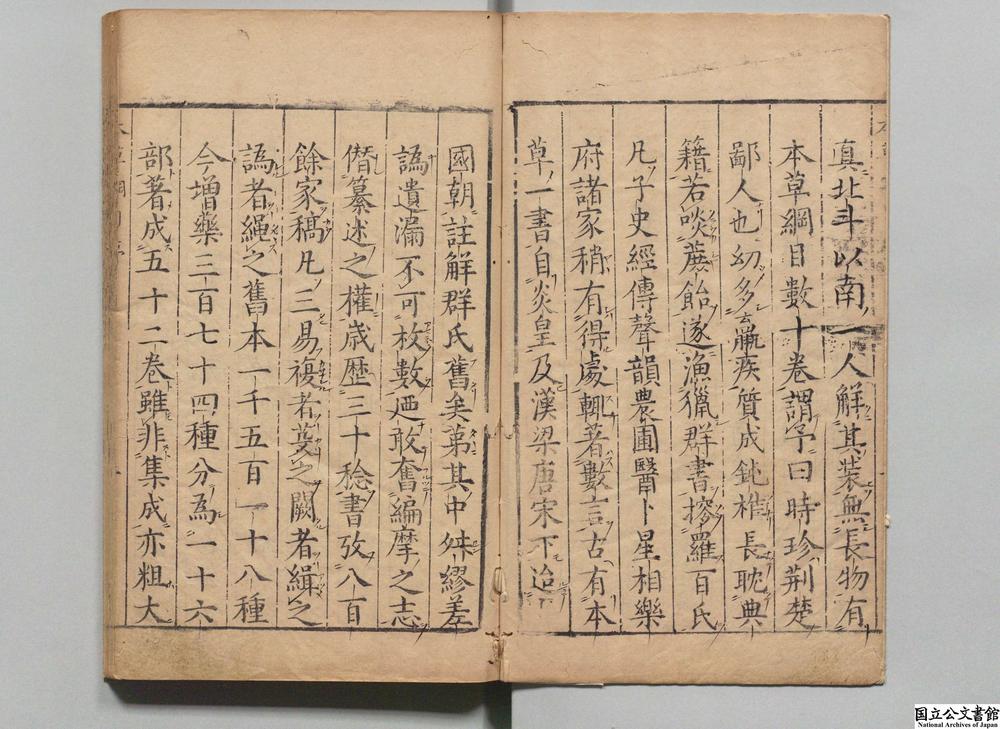 真北斗以南一人解其装無長物有
本草綱目數十卷謂予曰時珍荆楚
鄙人也幼多羸疾質成鈍椎長耽典
籍若啖蔗飴遂漁獵群書搜羅百氏
凡子史經傳聲韻農圃醫卜星相樂
府諸家稍有得處輙著數言古有本
草一書自炎皇及漢梁唐宋下迨
國朝註解群氏舊矣第其中舛繆差
譌遺漏不可枚數廼敢奮編摩之志
僭纂述之權歳歴三十稔書攷八百
餘家稿凡三易複者芟之闕者緝之
譌者繩之舊本一千五百一十八種
今增藥三百七十四種分為一十六
部著成五十二卷雖非集成亦粗大
国立公文書館
National Archives of Japan